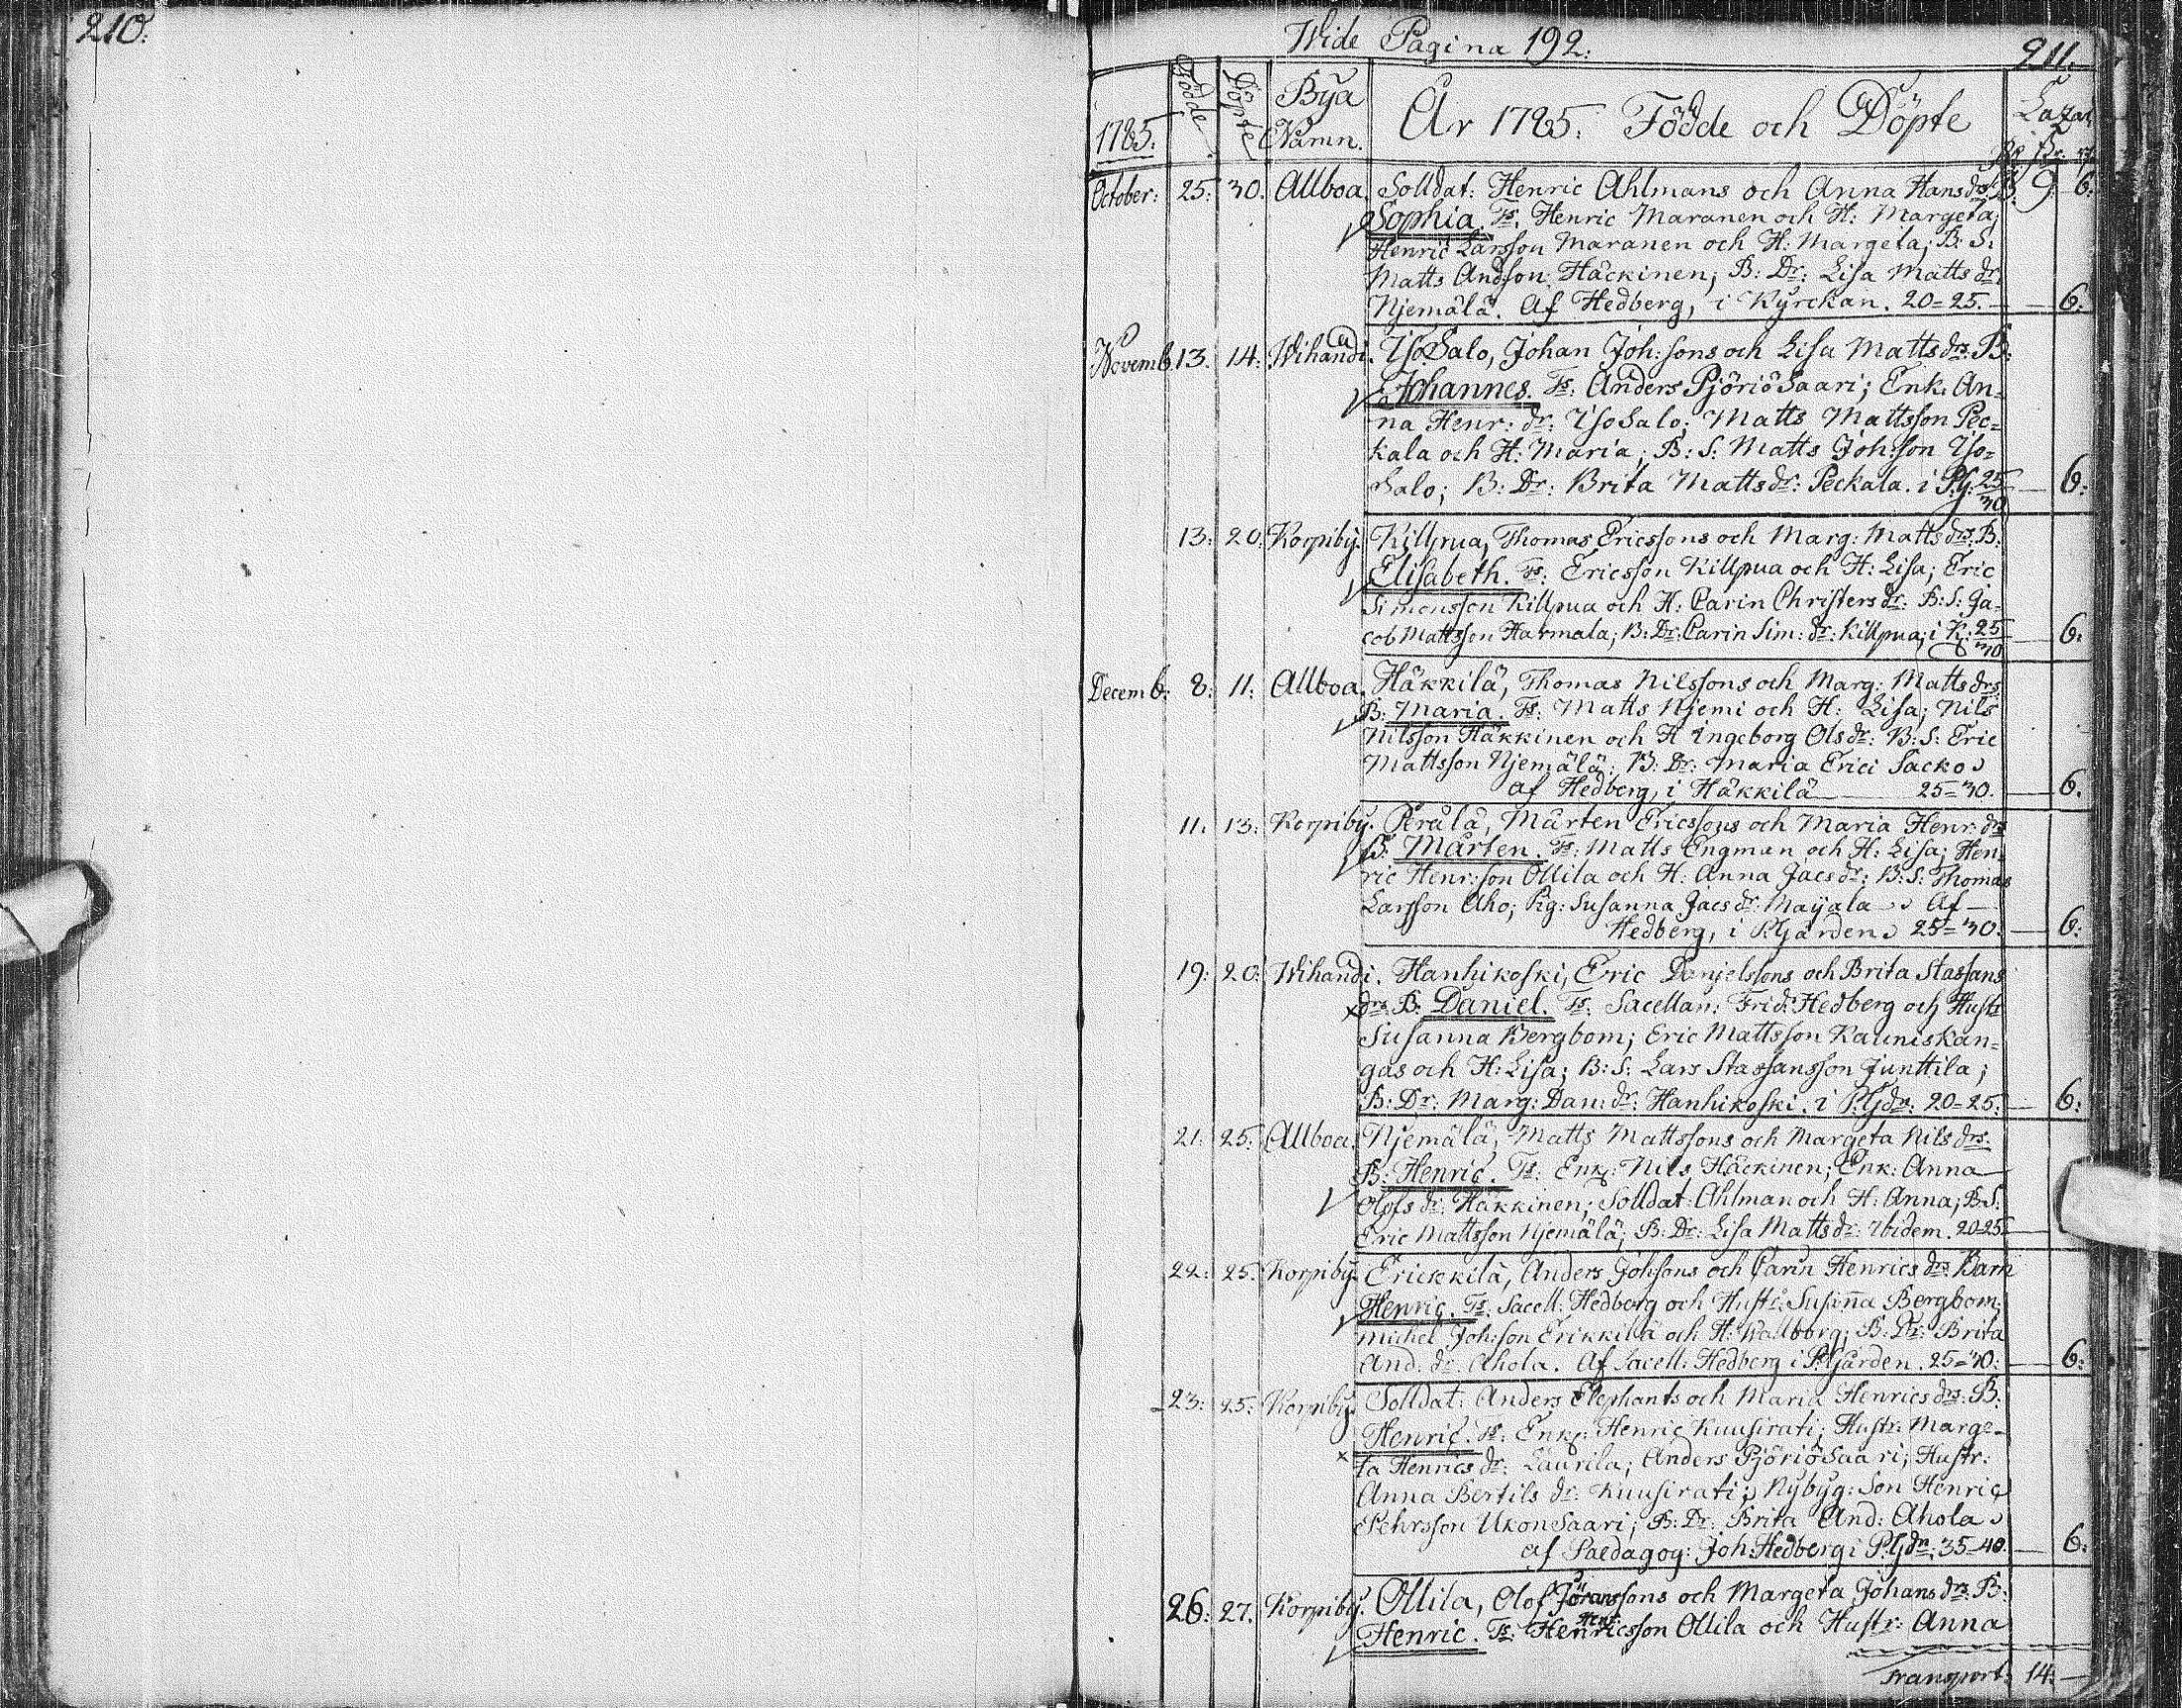 210.
Wide Pagina 192.
211.
1785.
Födde
Döpte
Bÿa Namn.
År 1785. Födde och Döpte
Lazar
October: 25: 30. Allboa. Solldat: Henric Ahlmans och Anna Hansdrs B. 9 6:
Sophia. Ts. Henric Maranen och H: Margeta;
Henric Larsson Maranen och H: Margeta; B: S:
Matts Andsson Häckinen; B: Dr: Lisa Matts dr
Njemälä. Af Hedberg, i Kÿrckan. 20=25. — 6:
Novemb. 13. 14. Wihandi. IsoSalo, Johan Joh:sons och Lisa Matts drs B:
Johannes. Ts: Anders PjöriöSaari; Enk. An-
na Henr: dr: IsoSalo; Matts Mattsson Pec=
kala och H: Maria; B: S: Matts Joh:son Iso=
Salo; B: Dr: Brita Matts dr: Peckala. i P.g: 25/30 — 6:
13: 20: Korpibÿ. Killpua, Thomas Ericssons och Marg: Matts drs: B:
Elisabeth. Ts: Ericsson Killpua och H: Lisa; Eric
Simonsson Killpua och H: Carin Christers dr: B: S: Ja-
cob Mattsson Harmala; B: Dr: Carin Sim: dr: Killpua; i K: 25/30 — 6:
Decemb: 8: 11: Allboa. Häkkilä, Thomas Nilssons och Marg: Matts drs:
B: Maria. Ts: Matts Njemi och H: Lisa; Nils
Nilsson Häkkinen och H Ingeborg Ols dr: B: S: Eric
Mattsson Njemälä; B: Dr: Maria Erici Sacko
af Hedberg, i Häkkilä — 25=30. — 6.
11: 13: Korpibÿ. Perälä, Mårten Ericssons och Maria Henr: drs
B: Mårten. Ts: Matts Engman och H: Lisa; Hen-
ric Henr:son Ollila och H: Anna Jacs dr: B: S: Thomas
Larsson Aho; Pig: Susanna Jacs dr: Maÿala Af
Hedberg, i P.Gården 25=30: — 6:
19: 20: Wihandi. Hanhikoski, Eric Danjelssons och Brita Stassans
drs B: Daniel. Ts: Sacellan: Frid: Hedberg och Hustr
Susanna Bergbom; Eric Mattsson Kauniskan=
gas och H: Lisa; B: S: Lars Stassansson Junttila;
B: Dr: Marg: Dan: dr: Hanhikoski. i P.Gdn: 20-25. — 6:
21: 25: Allboa. Njemälä, Matts Mattssons och Margeta Nils drs:
B: Henric. Ts: Enkj: Nils Häckinen; Enk: Anna
Olofs dr: Häkkinen; Solldat: Ahlman och H: Anna; B.S:
Eric Mattsson Njemälä; B: Dr: Lisa Matts dr: Ibidem. 20-25 —
22: 25: Korpibÿ. Erickkilä, Anders Johsons och Carin Henrics drs: Barn
Henric. Ts: Sacell: Hedberg och Hustr: Susanna Bergbom;
Michel Joh:son Erikkilä och H: Wallborg; B: Dr: Brita
And: dr: Ahola. Af Sacell: Hedberg i P.Gården. 25=30: — 6:
23: 25: Korpibÿ. Solldat: Anders Elephants och Maria Henrics drs: B:
Henric. Ts: Enkj: Henric Kuusirati; Hustr: Marge-
ta Henrics dr: Laurila; Anders PjöriöSaari; Hustr:
Anna Bertils dr: Kuusirati; Nÿbÿg: Son Henric
Pehrsson UkonSaari; B: Dr: Brita And: Ahola
af Paedagog: Joh: Hedberg i P.Gdn: 35-40. — 6:
26: 27. Korpibÿ. Ollila, Olof Jöranssons och Margeta Johans drs: B:
Henric. Ts: Henr: Henricsson Ollila och Hustr: Anna
Transport: 14: —